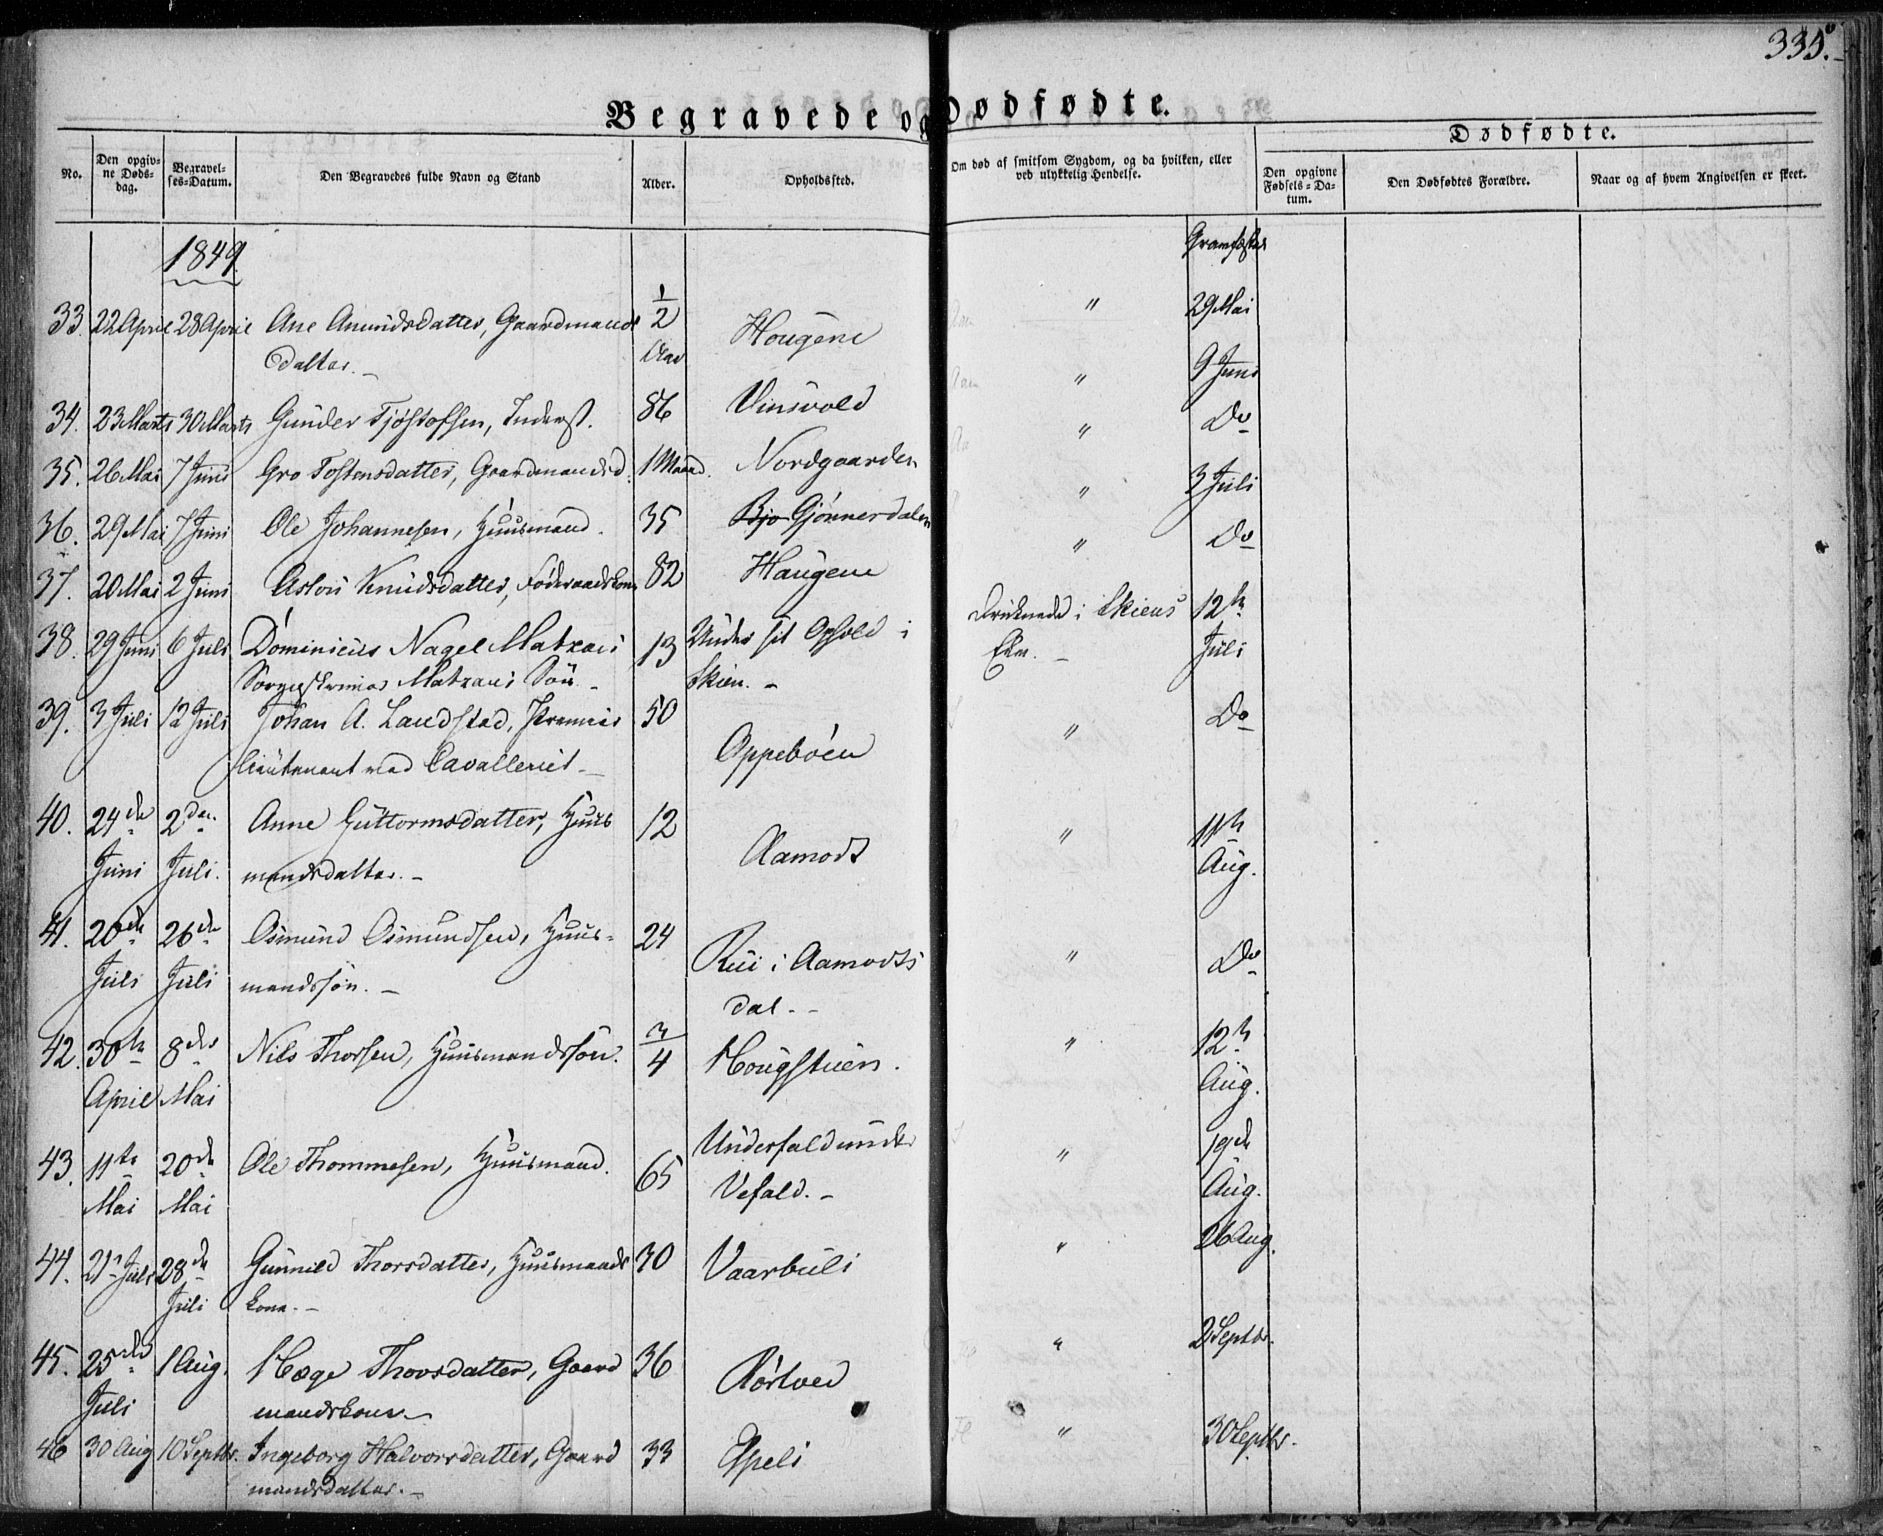 335.
Begravede og Dødfødte.
Dødfødte.
No.
Den opgiv-
ne Døds-
dag.
Begravel-
ses-Datum.
Den Begravedes fulde Navn og Stand
Alder.
Opholdssted.
Om død af smitsom Sygdom, og da hvilken, eller
ved ulykkelig Hendelse.
Den opgivne
Fødsels-Da-
tum.
Den Dødfødtes Forældre.
Naar og af hvem Angivelsen er skeet.
1849.
33. 22 April 28 April Ane Amundsdatter, Gaardmands 1/2 Hougene " 29 Mai
datter. Aar
34. 23 Marts 30 Marts Gunder Tjøstofsen, Inderst. 86 Vinsvold " 9 Juni
35. 26 Mai 7 Juni Gro Tostensdatter, Gaardmandsd. 1 Maaned. Nordgaarden " Do
36. 29 Mai 7 Juni Ole Johannesen, Huusmand. 35 Bjo Gjønnerdalen " 3 Juli
37. 20 Mai 2 Juni Aslou Knudsdatter, Føderaadskone 82 Haugene " Do
38. 29 Juni 6 Juli Dominicus Nagel 13 Under sit Ophold i Druknede i Skiens 12te
Søn. Skien. Elv. Juli
39. 3 Juli 12 Juli Johan A. Landstad, Premier 50 Oppebøen " Do
lieutenant ved Cavalleriet.
40. 24de 2den Anne Guttormsdatter, Huus 12 Aamodt " 11te
Juni Juli. mandsdatter. Aug.
41. 20de 26de Osmund Osmundsen, Huus- 24 Rui i Aamodts " Do
Juli Juli mandssøn. dal.
42. 30te 8de Nils Thorsen, Huusmandssøn. 3/4 Hougstuen. " 12te
April Mai Aug.
43. 11te 20de Ole Thommesen, Huusmand. 65 Underfald under " 19de
Mai Mai Vefald. Aug.
44. 21 Juli 28de Gunnild Thorsdatter, Huusmands 30 Vaarbuli " 26 Aug.
Juli kone.
45. 25de 1 Aug. Hæge Thovsdatter, Gaard 36 Rørtved " 2 Septbr.
Juli mandskone
46 30 Aug 10 Septbr. Ingeborg Halvorsdatter, Gaard 33 Espeli " 30 Septbr.
mandsdatter.